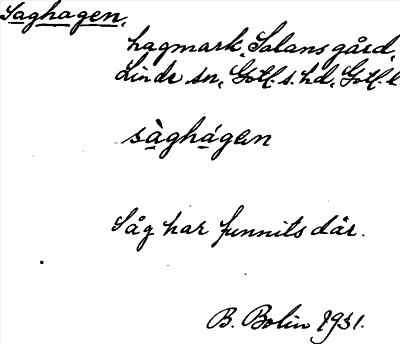 Saghagen.
hagmark, Salans gård,
Linde sn, Gotl. s. hd, Gotl. l.
sàghágen
Såg har funnits där.
B. Bolin 1931.